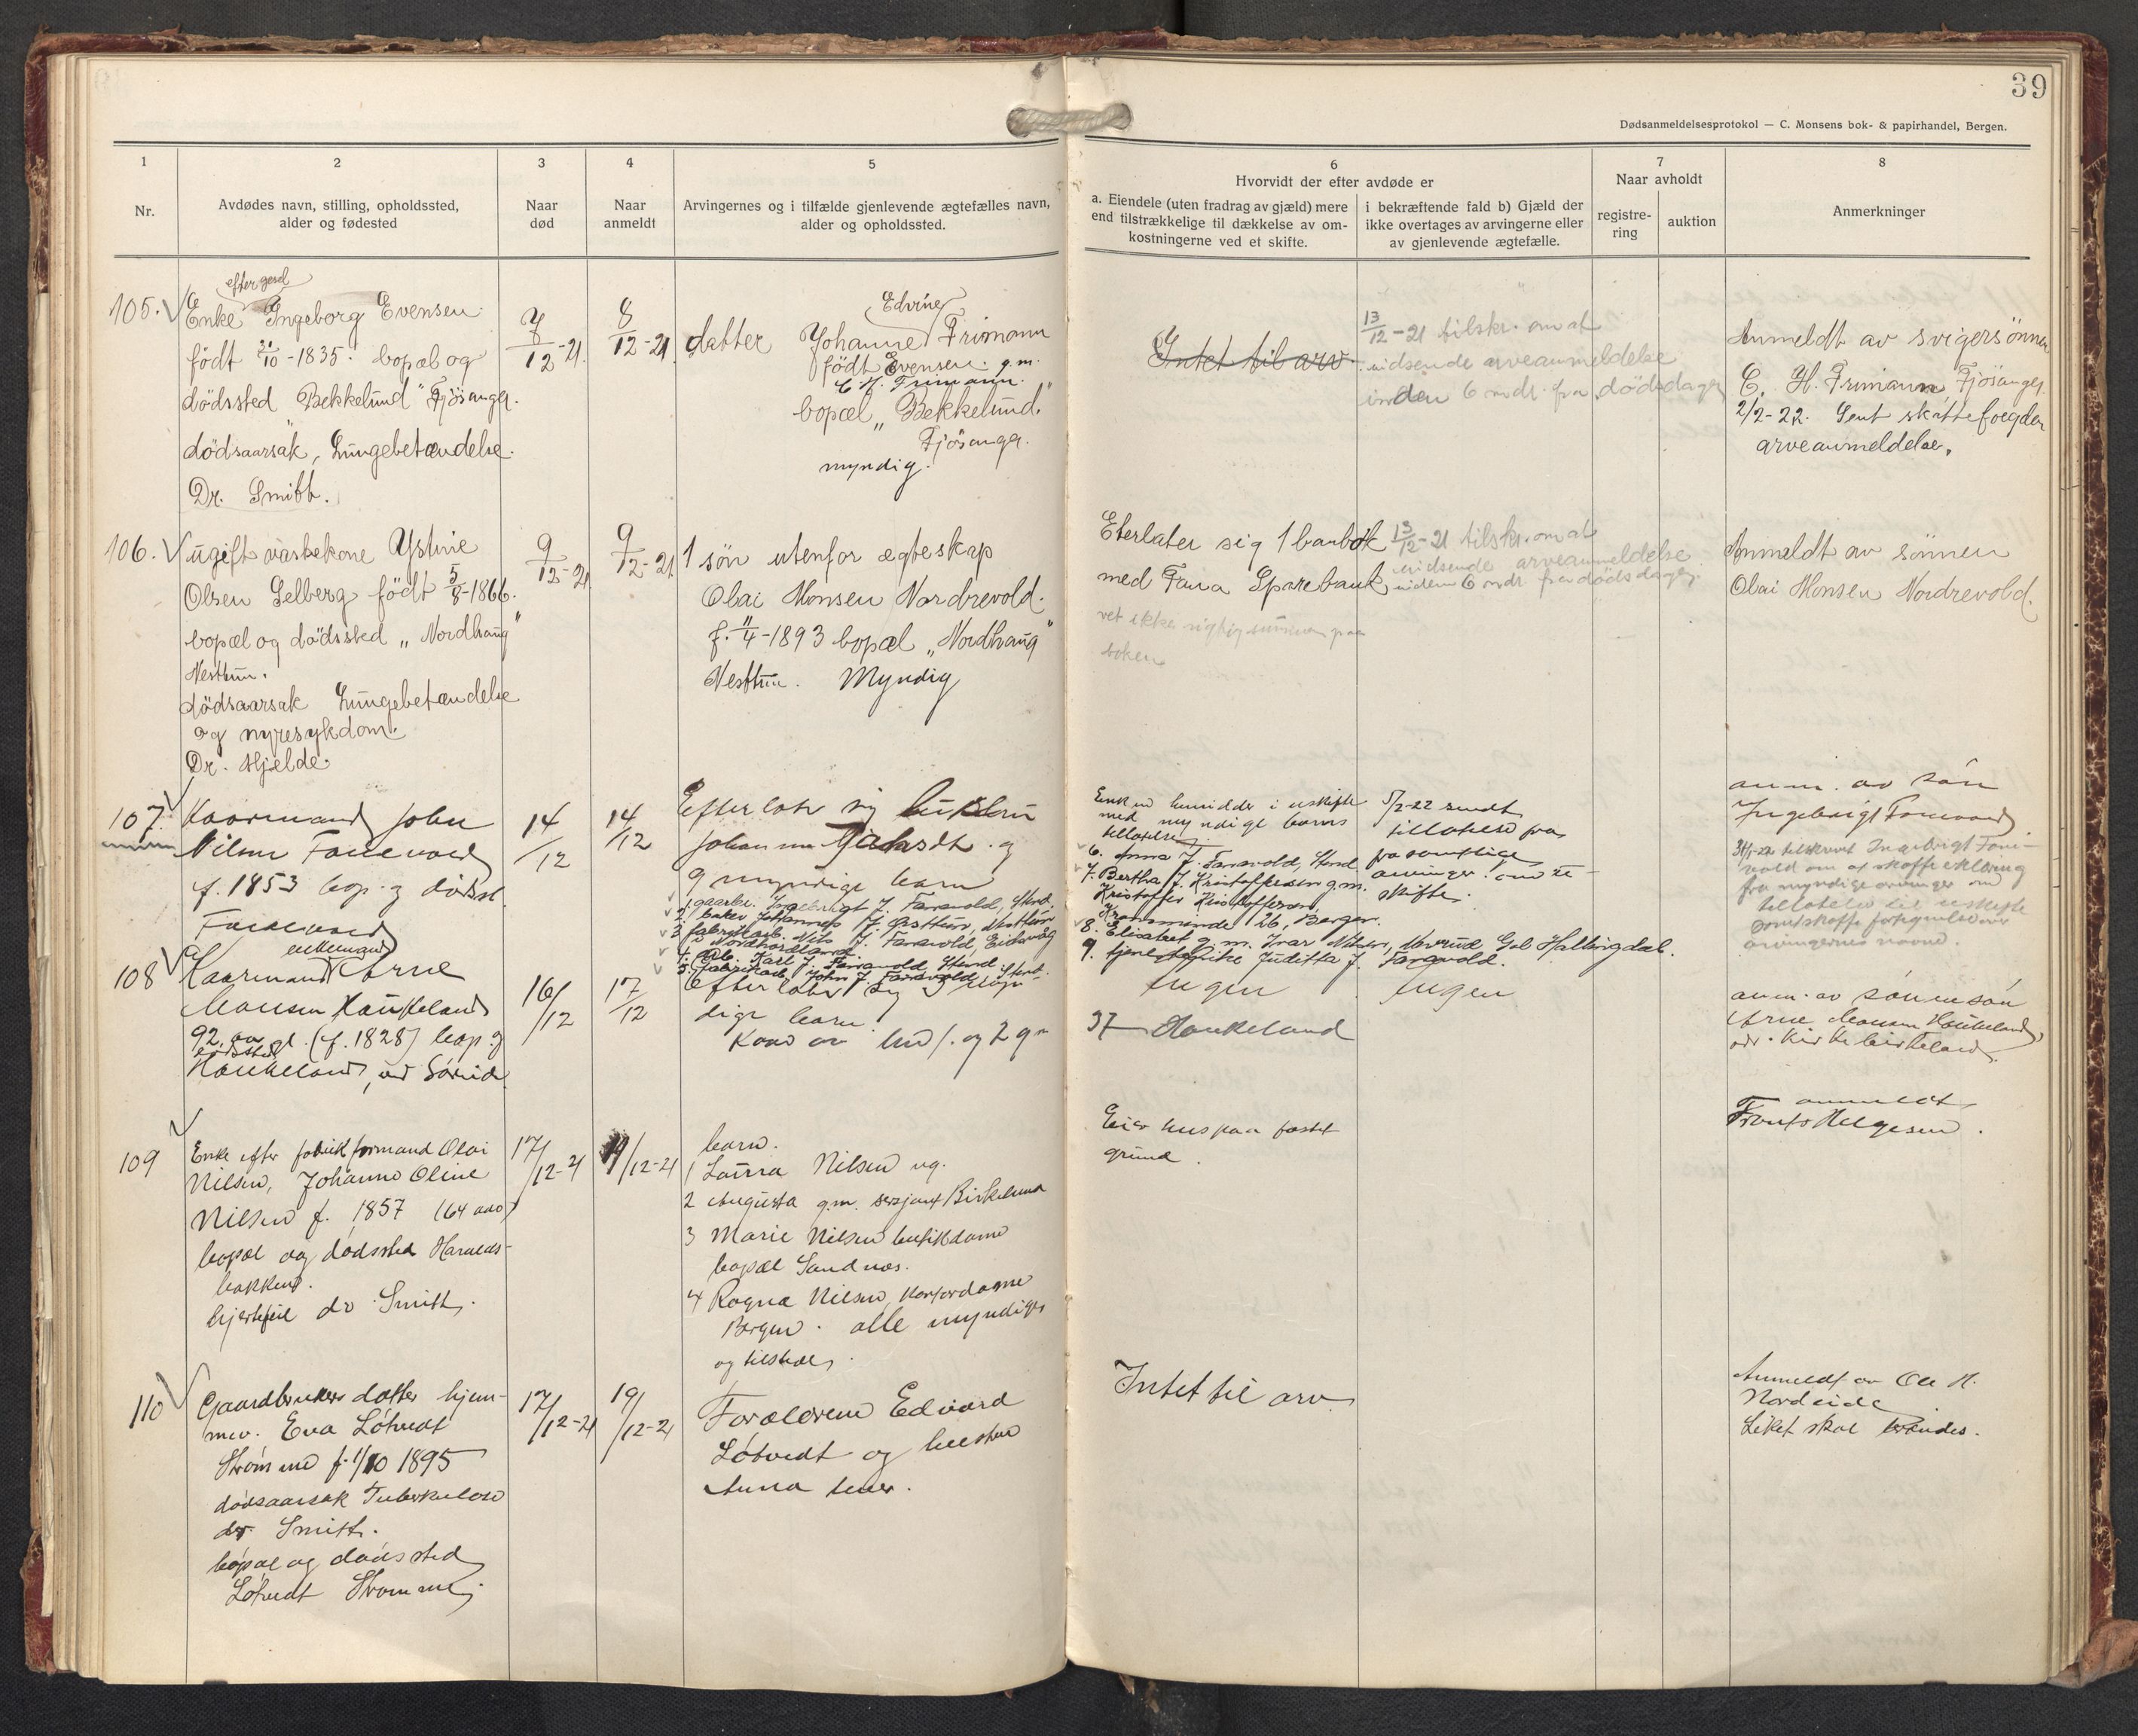 39
Dødsanmeldelsesprotokol — C. Monsens bok- & papirhandel, Bergen.
1
Nr.
2
Avdødes navn, stilling, opholdssted,
alder og fødested
3
Naar
død
4
Naar
anmeldt
5
Arvingernes og i tilfælde gjenlevende ægtefælles navn,
alder og opholdssted.
6
Hvorvidt der efter avdøde er
a. Eiendele (uten fradrag av gjæld) mere
end tilstrækkelige til dækkelse av om-
kostningerne ved et skifte.
i bekræftende fald b) Gjæld der
ikke overtages av arvingerne eller
av gjenlevende ægtefælle.
7
Naar avholdt
registre-
ring
auktion
8
Anmerkninger
105.
Enke Ingeborg Evensen
født 31/10 - 1835. bopæl og
dödssted Bekkelund" Fjösanger.
dödsaarsak, Lungebetændelse.
Dr. Smith.
7/12-21.
8/12-21.
Edvine
datter Johanne Frimann
født Evensen. g.m.
C. H. Frimann.
bopæl „Bekkelund."
Fjösanger.
myndig.
Intet til arv.
13/12-21 tilskr. om at
indsende arveanmeldelse
inden 6 mdr. fra dødsdagen
Anmeldt av svigersönnen
C. H. Frimann Fjösanger.
2/2-22. Sent skattefogden
arveanmeldelse.
106.
ugift vaskekone Ystine
Olsen Selberg født 5/8-1866.
bopæl og dödssted „Nordhaug"
Nesttun.
dödsaarsak Lungebetændelse
og nyresykdom.
Dr. Hjelde.
9/12-21
9/12-21
1 sön utenfor ægteskap
Olai Monsen Nordrevold.
f. 11/4-1893 bopæl „Nordhaug"
Nesttun. Myndig
Eterlater sig 1 bankbok
med Fana Sparebank
vet ikke rigtig summen paa
boken
13/12-21 tilskr. om at
indsende arveanmeldelse
inden 6 mdr fra dødsdagen.
Anmeldt av sönnen
Olai Monsen Nordrevold.
107.
Kaarmand John
Nilsen Fanevold
f. 1853 bop. og dødsst.
Fanevold
14/12
14/12
Efterlater sig
Johanna
9 myndige barn
1. gaardbr. Ingebrigt J. Fanevold, Stend.
2. baker Johannes J. Nesttun
3. fabrikarb. Nils J. Fanevold, Eidsvåg
i Nordhordland
4. arb. Karl J. Fanevold Stend.
5. fabrikarb. John J. Fanevold, Stend.
Enken hensidder i uskifte
med myndige barns
tillatelse.
6. Anna J. Fanevold, Stend
7. Bertha J. Kristoffersen g.m.
Kristoffer Kristoffersen,
26, Bergen.
8. Elisabet g.m. Ivar Nilsen, Gol Hallingdal.
9. tjenestepike Juditta J. Fanevold.
5/2-22 sendt
tillatelse fra
fra samtlige
arvinger om u-
skifte.
anm. av søn
Ingebrigt Fanevold
31/1-22 tilskrevet Ingebrigt Fane-
vold om at skaffe erklæring
fra myndige arvinger om
tillatelse til uskifte
samt skaffe fortegnelse over
arvingernes navne.
108
enkemand
Kaarmand Arne
Monsen Haukeland
92 aar gl. (f. 1828) bop. og
dødssted
Haukeland
16/12
17/12
Efterlater sig 3 myn-
dige barn.
Ingen
37 Haukeland
Ingen
anm. av sönnesön
Arne Monsen Haukeland,
109
Enke efter fabrikformand Olai
Nilsen, Johanne Oline
Nilsen f. 1857 (64 aar)
bopæl og dødssted Haralds-
bakken.
hjertefeil dr. Smith.
17/12-21
19/12-21
barn.
1 Laura Nilsen ug.
2 Augusta g.m. sersjant Birkelund
3 Marie Nilsen butikdame
bopæl Sandnes.
4 Ragna Nilsen, kontordame
Bergen. alle myndige
og tilstede.
Eier hus paa fæstet
grund.
anmeldt
Frants Helgesen.
110
Gaardbrukers datter hjem-
mev. Eva Løtvedt
Strømme f. 1/10 1895
dødsaarsak Tuberkulose
dr. Smith.
bopæl og dødssted
Løtvedt Strømme.
17/12-21
19/12-21
Forældrene Edvard
Løtvedt og hustru
Anna
Intet til arv
Anmeldt av Ole H.
Nordeide
Liket skal brændes.